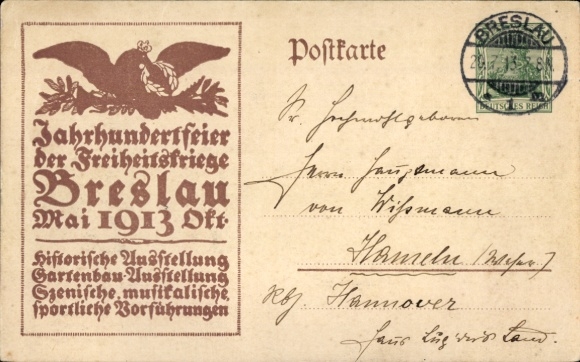 Jahrhundertfeier
der Freiheitskriege
Breslau
Mai 1913 Okt.
Historische Ausstellung
Gartenbau-Ausstellung
Szenische, musikalische,
sportliche Vorführungen
Postkarte
BRESLAU
DEUTSCHES REICH
Sr. Hochwohlgeboren
Herrn Hauptmann
von Wißmann
Hameln (Weser)
Rbz Hannover
Haus Lug ins Land.